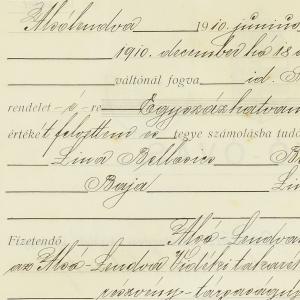 Alsólendva 1910. junius
1910. december hó 18
váltónál fogva id.
rendelet -é- re Egyszázhatvan
értéke't felvettem és tegye számolásba
Lina
Baja Li
Fizetendő Alsó-Lendva
az Alsó-Lendva Vidéki takaré
részvény-társaságn